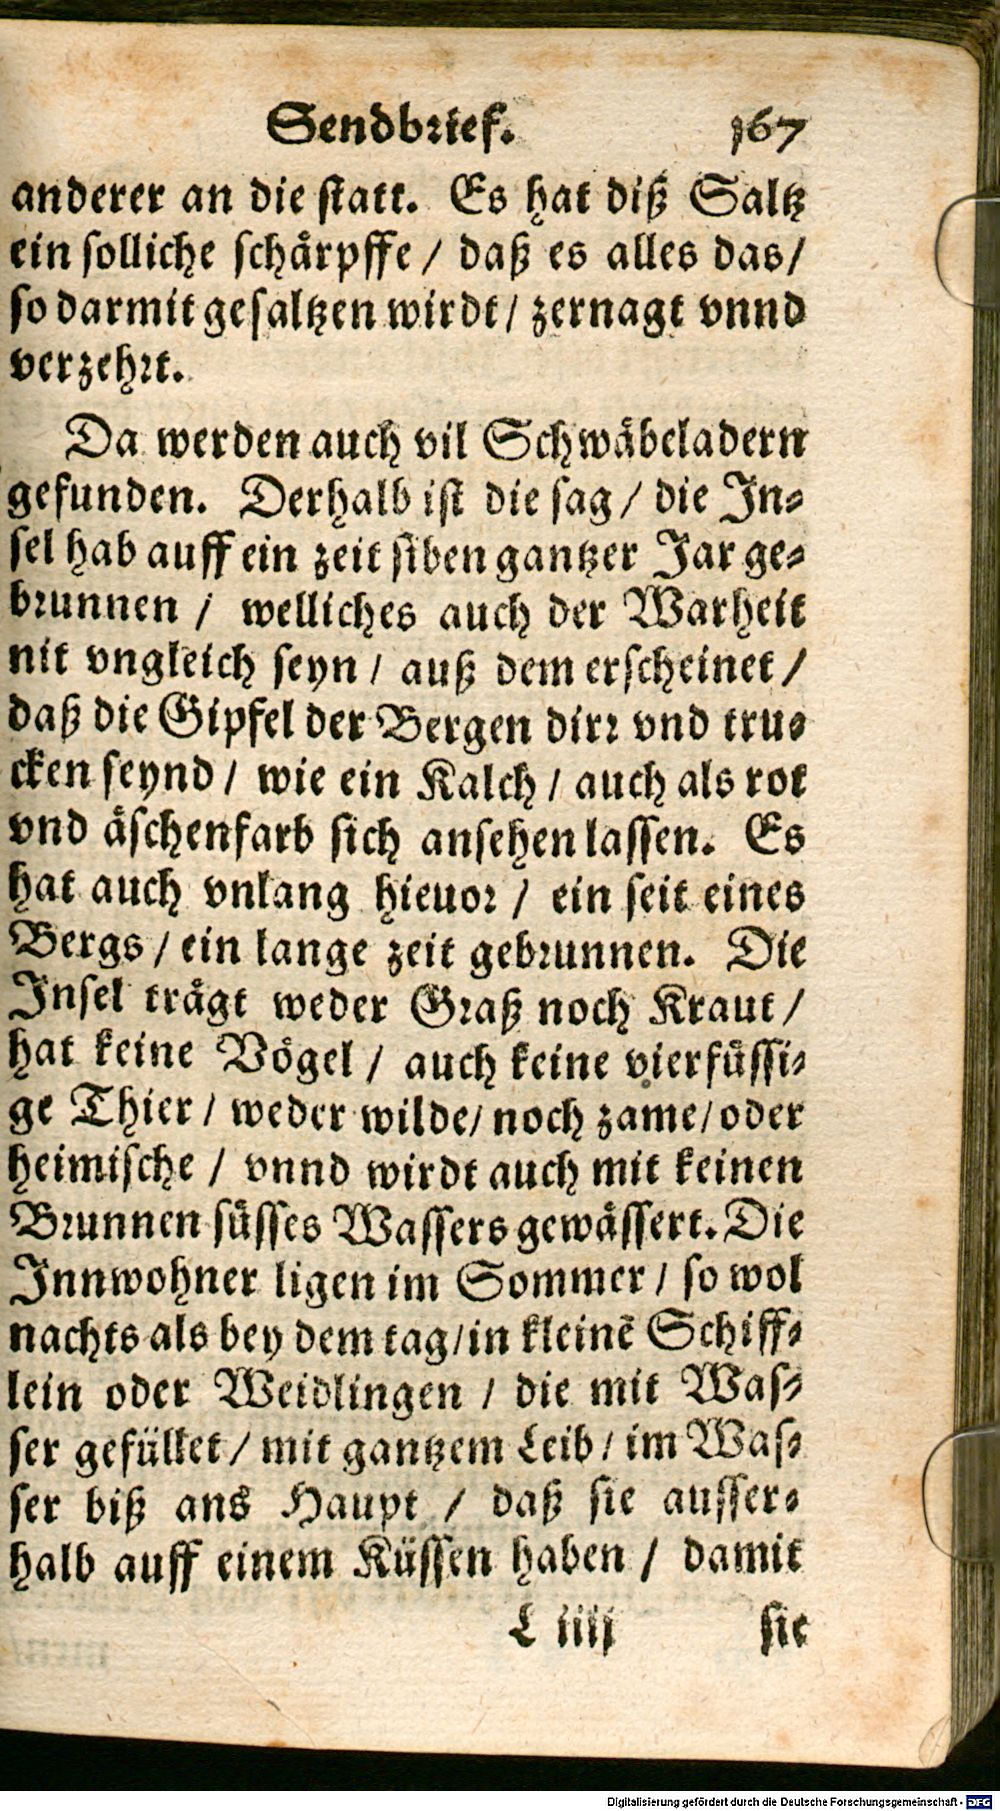 Sendbrief. 167
anderer an die statt. Es hat diß Saltz
ein solliche schärpffe / daß es alles das /
so darmit gesaltzen wirdt / zernagt vnnd
verzehrt.
Da werden auch vil Schwäbeladern
gefunden. Derhalb ist die sag / die In-
sel hab auff ein zeit siben gantzer Jar ge-
brunnen / welliches auch der Warheit
nit vngleich seyn / auß dem erscheinet /
daß die Gipfel der Bergen dirr vnd tru-
cken seynd / wie ein Kalch / auch als rot
vnd äschenfarb sich ansehen lassen. Es
hat auch vnlang hieuor / ein seit eines
Bergs / ein lange zeit gebrunnen. Die
Insel trägt weder Graß noch Kraut /
hat keine Vögel / auch keine vierfüssi-
ge Thier / weder wilde / noch zame / oder
heimische / vnnd wirdt auch mit keinen
Brunnen süsses Wassers gewässert. Die
Innwohner ligen im Sommer / so wol
nachts als bey dem tag / in kleinẽ Schiff-
lein oder Weidlingen / die mit Was-
ser gefüllet / mit gantzem Leib / im Was-
ser biß ans Haupt / daß sie ausser-
halb auff einem Küssen haben / damit
L iiij sie
Digitalisierung gefördert durch die Deutsche Forschungsgemeinschaft - DFG